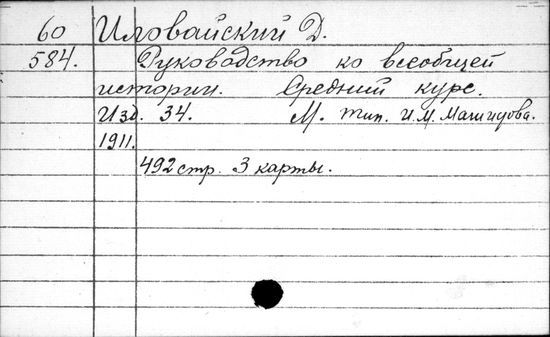 60 Иловайский Д.
584. Руководство ко всеобщей
истории. Средний курс.
Изд. 34. М. тип. И.М. Машистова.
1911.
492 стр. 3 карты.